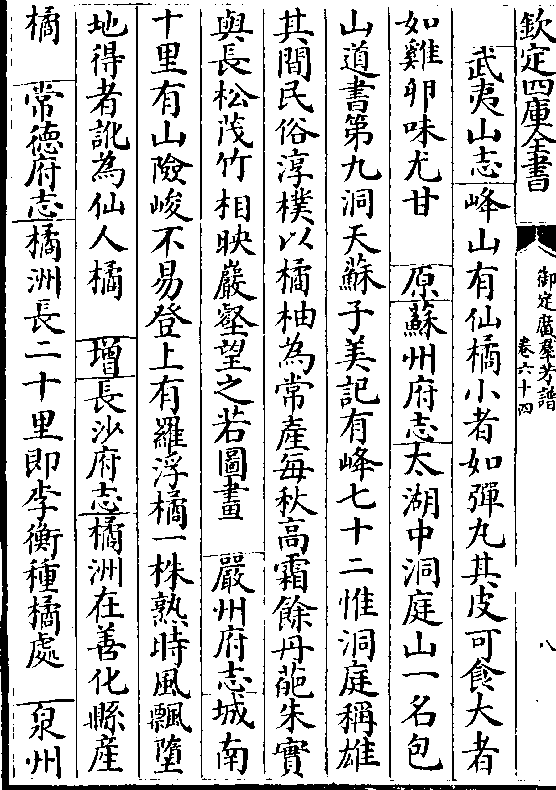 欽定四庫全書
御定廣羣芳譜
卷六十四
八
武夷山志峰山有仙橘小者如彈丸其皮可食大者
如雞卵味尤甘 原蘇州府志太湖中洞庭山一名包
山道書第九洞天蘇子美記有峰七十二惟洞庭稱雄
其間民俗淳樸以橘柚為常産每秋高霜餘丹葩朱實
與長松茂竹相映巖壑望之若圖畫 嚴州府志城南
十里有山險峻不易登上有羅浮橘一株熟時風飄墮
地得者訛為仙人橘 增長沙府志橘洲在善化縣産
橘 常德府志橘洲長二十里即李衡種橘處 泉州